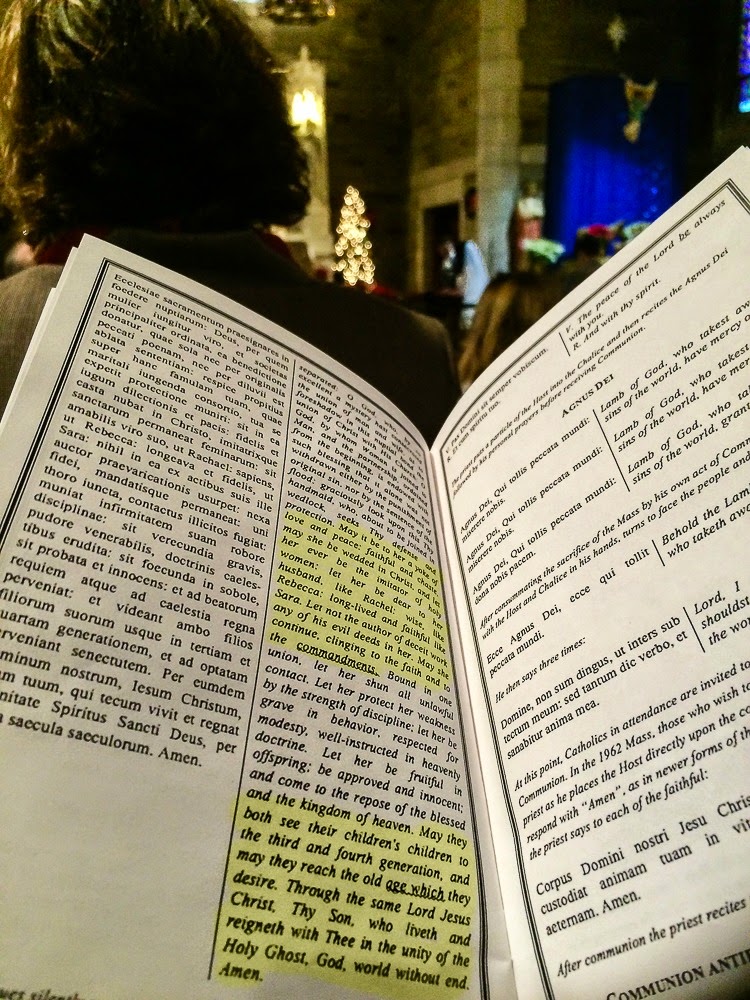 Ecclesiae sacramentum praesignares in
foedere nuptiarum: Deus, per quem
mulier jungitur viro, et societas
principaliter ordinata, ea benedictione
donatur, quae sola nec per originalis
peccati poenam, nec per diluvii est
ablata sententiam: respice propitius
super hanc famulam tuam, quae
maritali jungenda consortio, tua se
expetit protectione muniri: sit in ea
jugum dilectionis et pacis: fidelis et
casta nubat in Christo, imitatrixque
sanctarum permaneat feminarum: sit
amabilis viro suo, ut Rachael: sapiens,
ut Rebecca: longaeva et fidelis, ut
Sara: nihil in ea ex actibus suis ille
auctor praevaricationis usurpet: nexa
fidei, mandatisque permaneat: uni
thoro juncta, contactus illicitos fugiat:
muniat infirmitatem suam robore
disciplinae: sit verecundia gravis,
pudore venerabilis, doctrinis caeles-
tibus erudita: sit foecunda in sobole,
sit probata et innocens: et ad beatorum
requiem atque ad caelestia regna
perveniat: et videant ambo filios
filiorum suorum usque in tertiam et
quartam generationem, et ad optatam
perveniant senectutem. Per eumdem
minum nostrum, Iesum Christum,
um tuum, qui tecum vivit et regnat
nitate Spiritus Sancti Deus, per
a saecula saeculorum. Amen.
flood: graciously look upon this thy
handmaid, who, about to be
wedlock, seeks thy defense and
protection. May it be to her a yoke of
love and peace: faithful and chaste
may she be wedded in Christ, and let
her ever be the imitator of holy
women: let her be dear to her
husband, like Rachel: wise, like
Rebecca: long-lived and faithful like
Sara. Let not the author of deceit work
any of his evil deeds in her. May she
continue, clinging to the faith and to
the commandments. Bound in one
union, let her shun all unlawful
contact. Let her protect her weakness
by the strength of discipline; let her be
grave in behavior, respected for
modesty, well-instructed in heavenly
doctrine. Let her be fruitful in
offspring; be approved and innocent;
and come to the repose of the blessed
and the kingdom of heaven. May they
both see their children's children to
the third and fourth generation, and
may they reach the old age which they
desire. Through the same Lord Jesus
Christ, Thy Son, who liveth and
reigneth with Thee in the unity of the
Holy Ghost, God, world without end.
Amen.
V. Pax Domini sit semper vobiscum.
R. Et cum spiritu tuo.
V. The peace of the Lord be always
with you.
R. And with thy spirit.
The Priest puts a particle of the Host into the Chalice and then recites the Agnus Dei
followed by his personal prayers before receiving Communion.
AGNUS DEI
Agnus Dei, Qui tollis peccata mundi:
miserere nobis.
Agnus Dei, Qui tollis peccata mundi:
miserere nobis.
Agnus Dei, Qui tollis peccata mundi:
dona nobis pacem.
Lamb of God, who takest aw
sins of the world, have mercy o
Lamb of God, who takest
sins of the world, have mer
Lamb of God, who ta
sins of the world, gran
After consummating the sacrifice of the Mass by his own act of Comm
with the Host and Chalice in his hands, turns to face the people and
Ecce Agnus Dei, ecce qui tollit
peccata mundi.
Behold the Lam
who taketh awa
He then says three times:
Domine, non sum dingus, ut inters sub
tectum meum: sed tantum dic verbo, et
sanabitur anima mea.
Lord, I
shouldst
the wor
At this point, Catholics in attendance are invited to
Communion. In the 1962 Mass, those who wish to
priest as he places the Host directly upon the co
respond with "Amen", as in newer forms of the
the priest says to each of the faithful:
Corpus Domini nostri Jesu Chris
custodiat animam tuam in vit
aeternam. Amen.
After communion the priest recites
COMMUNION ANTI